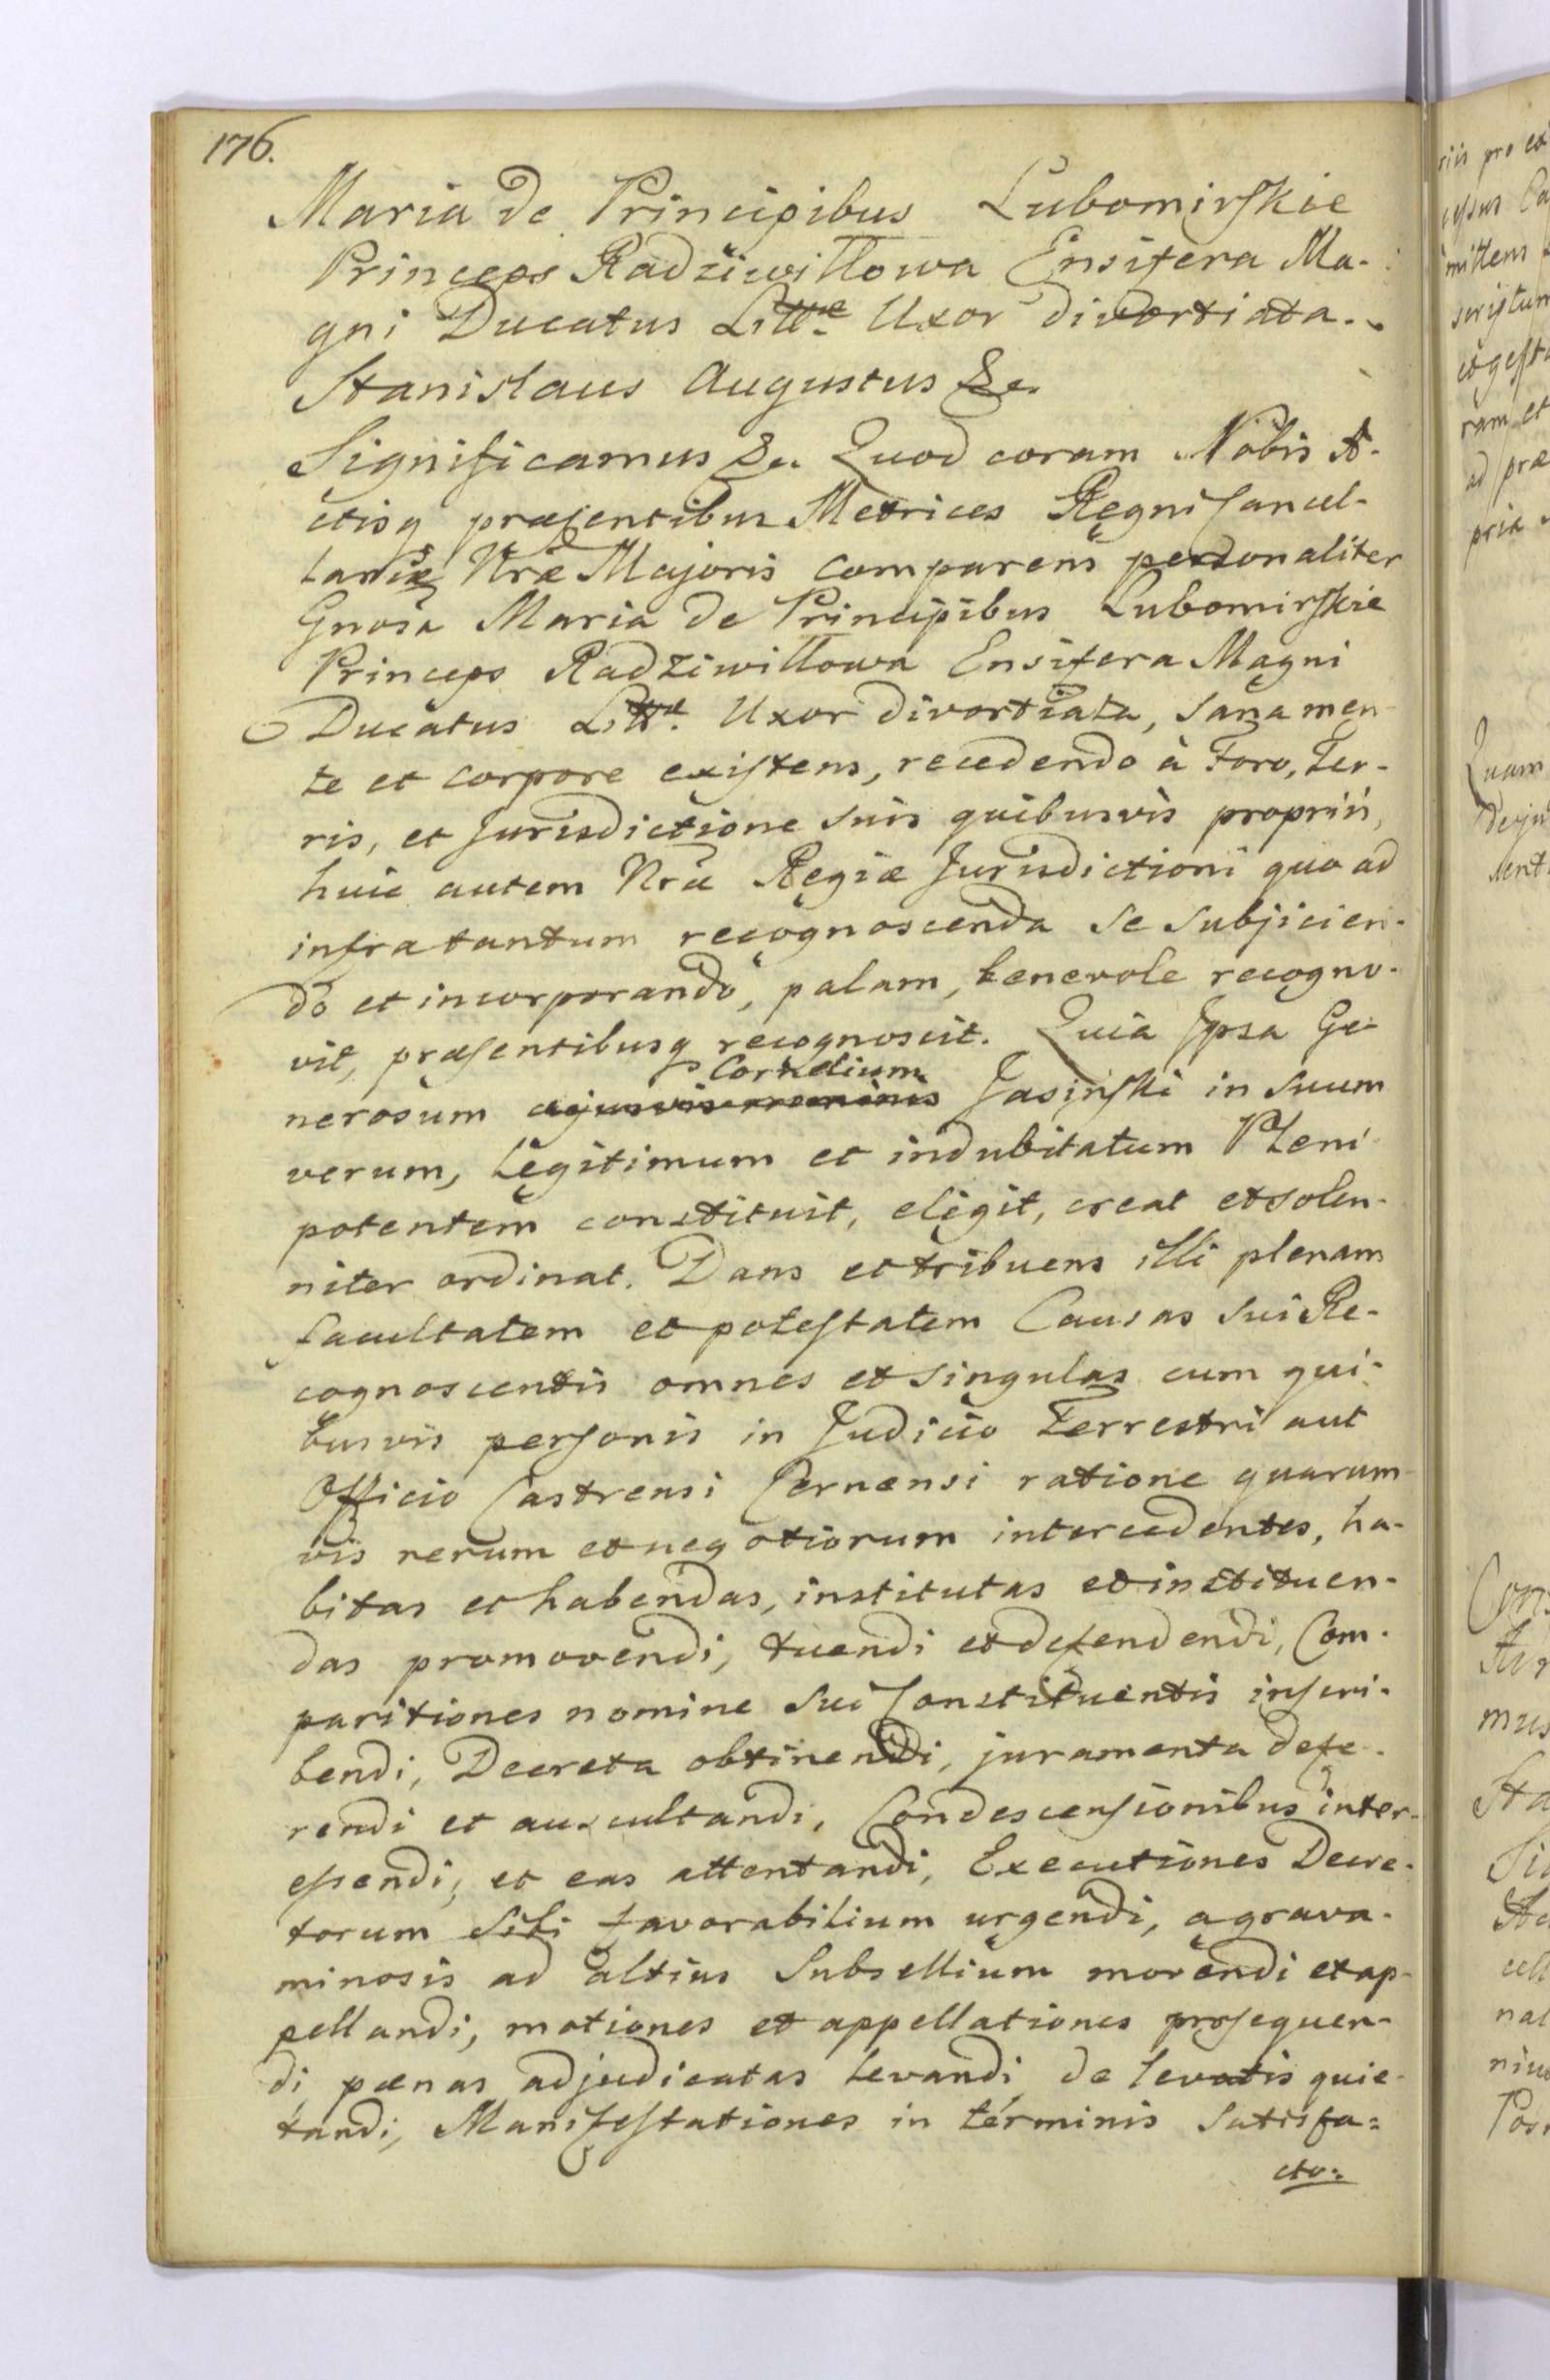 176.
Maria de Principibus Lubomirskie
Princeps Radziwiłłowa Ensifera Ma-
gni Ducatus Littæ Uxor divortiata.
Stanislaus Augustus &c.
Significamus &c. Quod coram Nobis A-
ctisq præsentibus Metrices Regni Cancel-
lariæ Nræ Majoris comparens personaliter
Gnosa Maria de Principibus Lubomirskie
Princeps Radziwiłłowa Ensifera Magni
Ducatus Littæ Uxor divortiata, sana men-
te et corpore existens, recedendo à Foro, Ter-
ris, et Jurisdictione suis quibusvis propriis,
huic autem Nræ Regiæ Jurisdictioni quo ad
infra tantum recognoscenda se subjicien-
do et incorporando, palam, benevole recogno-
vit, præsentibusq recognoscit. Quia Ipsa Ge-
Cornelium
nerosum Jasiński in suum
verum, legitimum et indubitatum Pleni
potentem constituit, eligit, creat et solen-
niter ordinat. Dans et tribuens illi plenam
facultatem et potestatem Causas sui Re-
cognoscentis omnes et singulas cum qui-
busvis personis in Judicio Terrestri aut
Officio Castrensi Cernensi ratione quarum-
vis rerum et negotiorum intercedentes, ha-
bitas et habendas, institutas et instituen-
das promovendi, tuendi et defendendi, Com-
paritiones nomine sui Constituentis inscri-
bendi, Decreta obtinendi, juramenta defe-
rendi et auscultandi, Condescensionibus inter-
essendi, et eas attentandi, Executiones Decre-
torum sibi favorabilium urgendi, agrava-
minosis ad altius Subsellium movendi et ap-
pellandi, motiones et appellationes prosequen-
di pænas adjudicatas levandi de levatis quie-
tandi, Manifestationes in términis satisfa=
cto=
riis pro ex
mittens
scriptum
ram et
ad præ
pria
Quam
mus